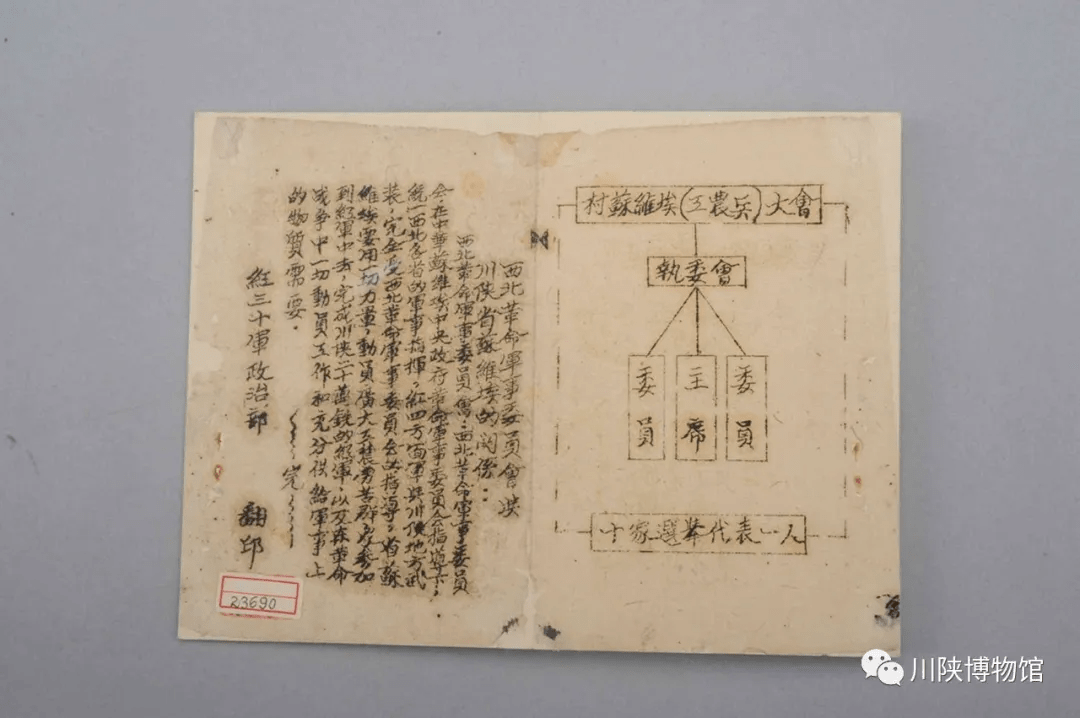 村蘇維埃(工農兵)大會
執委會
委員
主席
委員
十家選舉代表一人
西北革命軍事委員會與
川陝省蘇維埃的関係：
西北革命軍事委員會，西北革命軍事委員
会，在中華蘇維埃中央政府革命軍事委員会指導下，
統一西北各省的軍事指揮，紅四方面軍與川陝地方武
装，完全受西北革命軍事委員会的指導，省蘇
維埃要用一切力量，動員廣大工農勞苦群众参加
到紅軍中去，完成川陝二十萬鉄的紅軍，以及在革命
战争中一切動員工作和充分供給軍事上
的物質需要．
完
紅三十軍政治部 翻印
23690
川陕博物馆